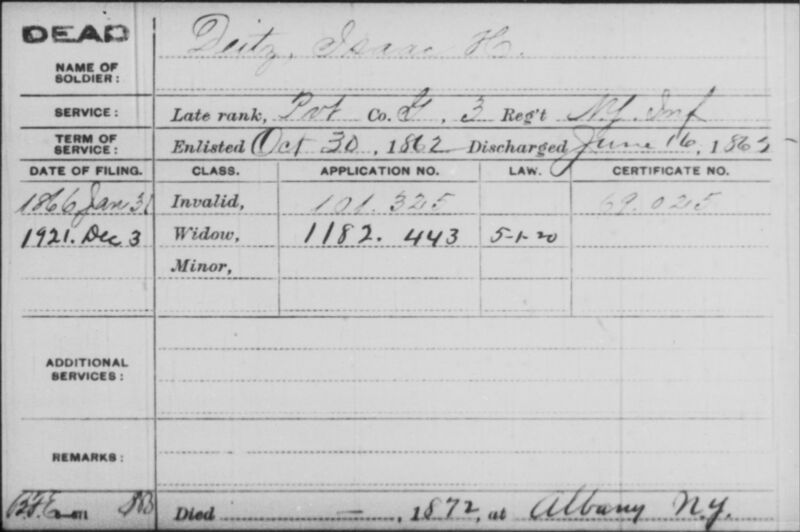 DEAD
NAME OF SOLDIER: Deitz, Isaac H.
SERVICE: Late rank, Pvt Co. G, 3 Reg't N.Y. Inf
TERM OF SERVICE: Enlisted Oct 30, 1862 Discharged June 16, 1865
DATE OF FILING. CLASS. APPLICATION NO. LAW. CERTIFICATE NO.
1866 Jan 31 Invalid, 101.325 69.025
1921. Dec 3 Widow, 1182.443 5-1-20
Minor,
ADDITIONAL SERVICES:
REMARKS:
Died —, 1872, at Albany N.Y.